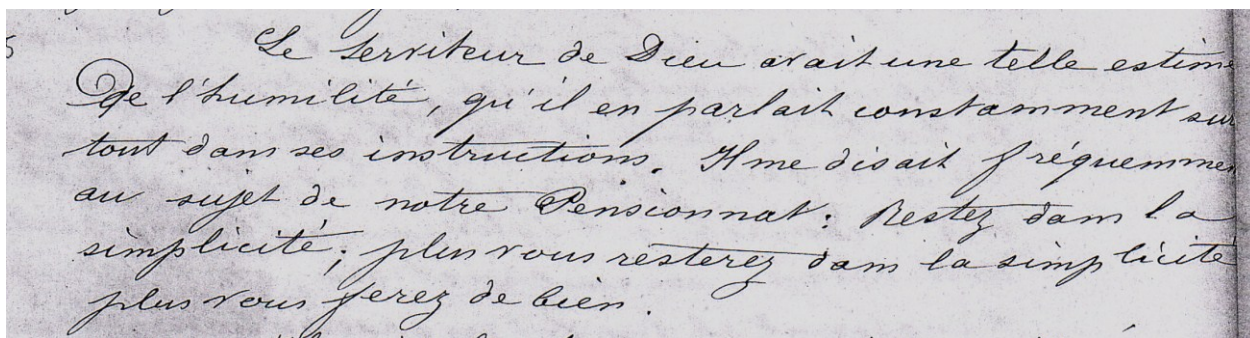 Le Serviteur de Dieu avait une telle estime
de l'humilité, qu'il en parlait constamment sur
tout dans ses instructions. Il me disait fréquemme
au sujet de notre Pensionnat: Restez dans la
simplicité; plus vous resterez dans la simplicité
plus vous ferez de bien.